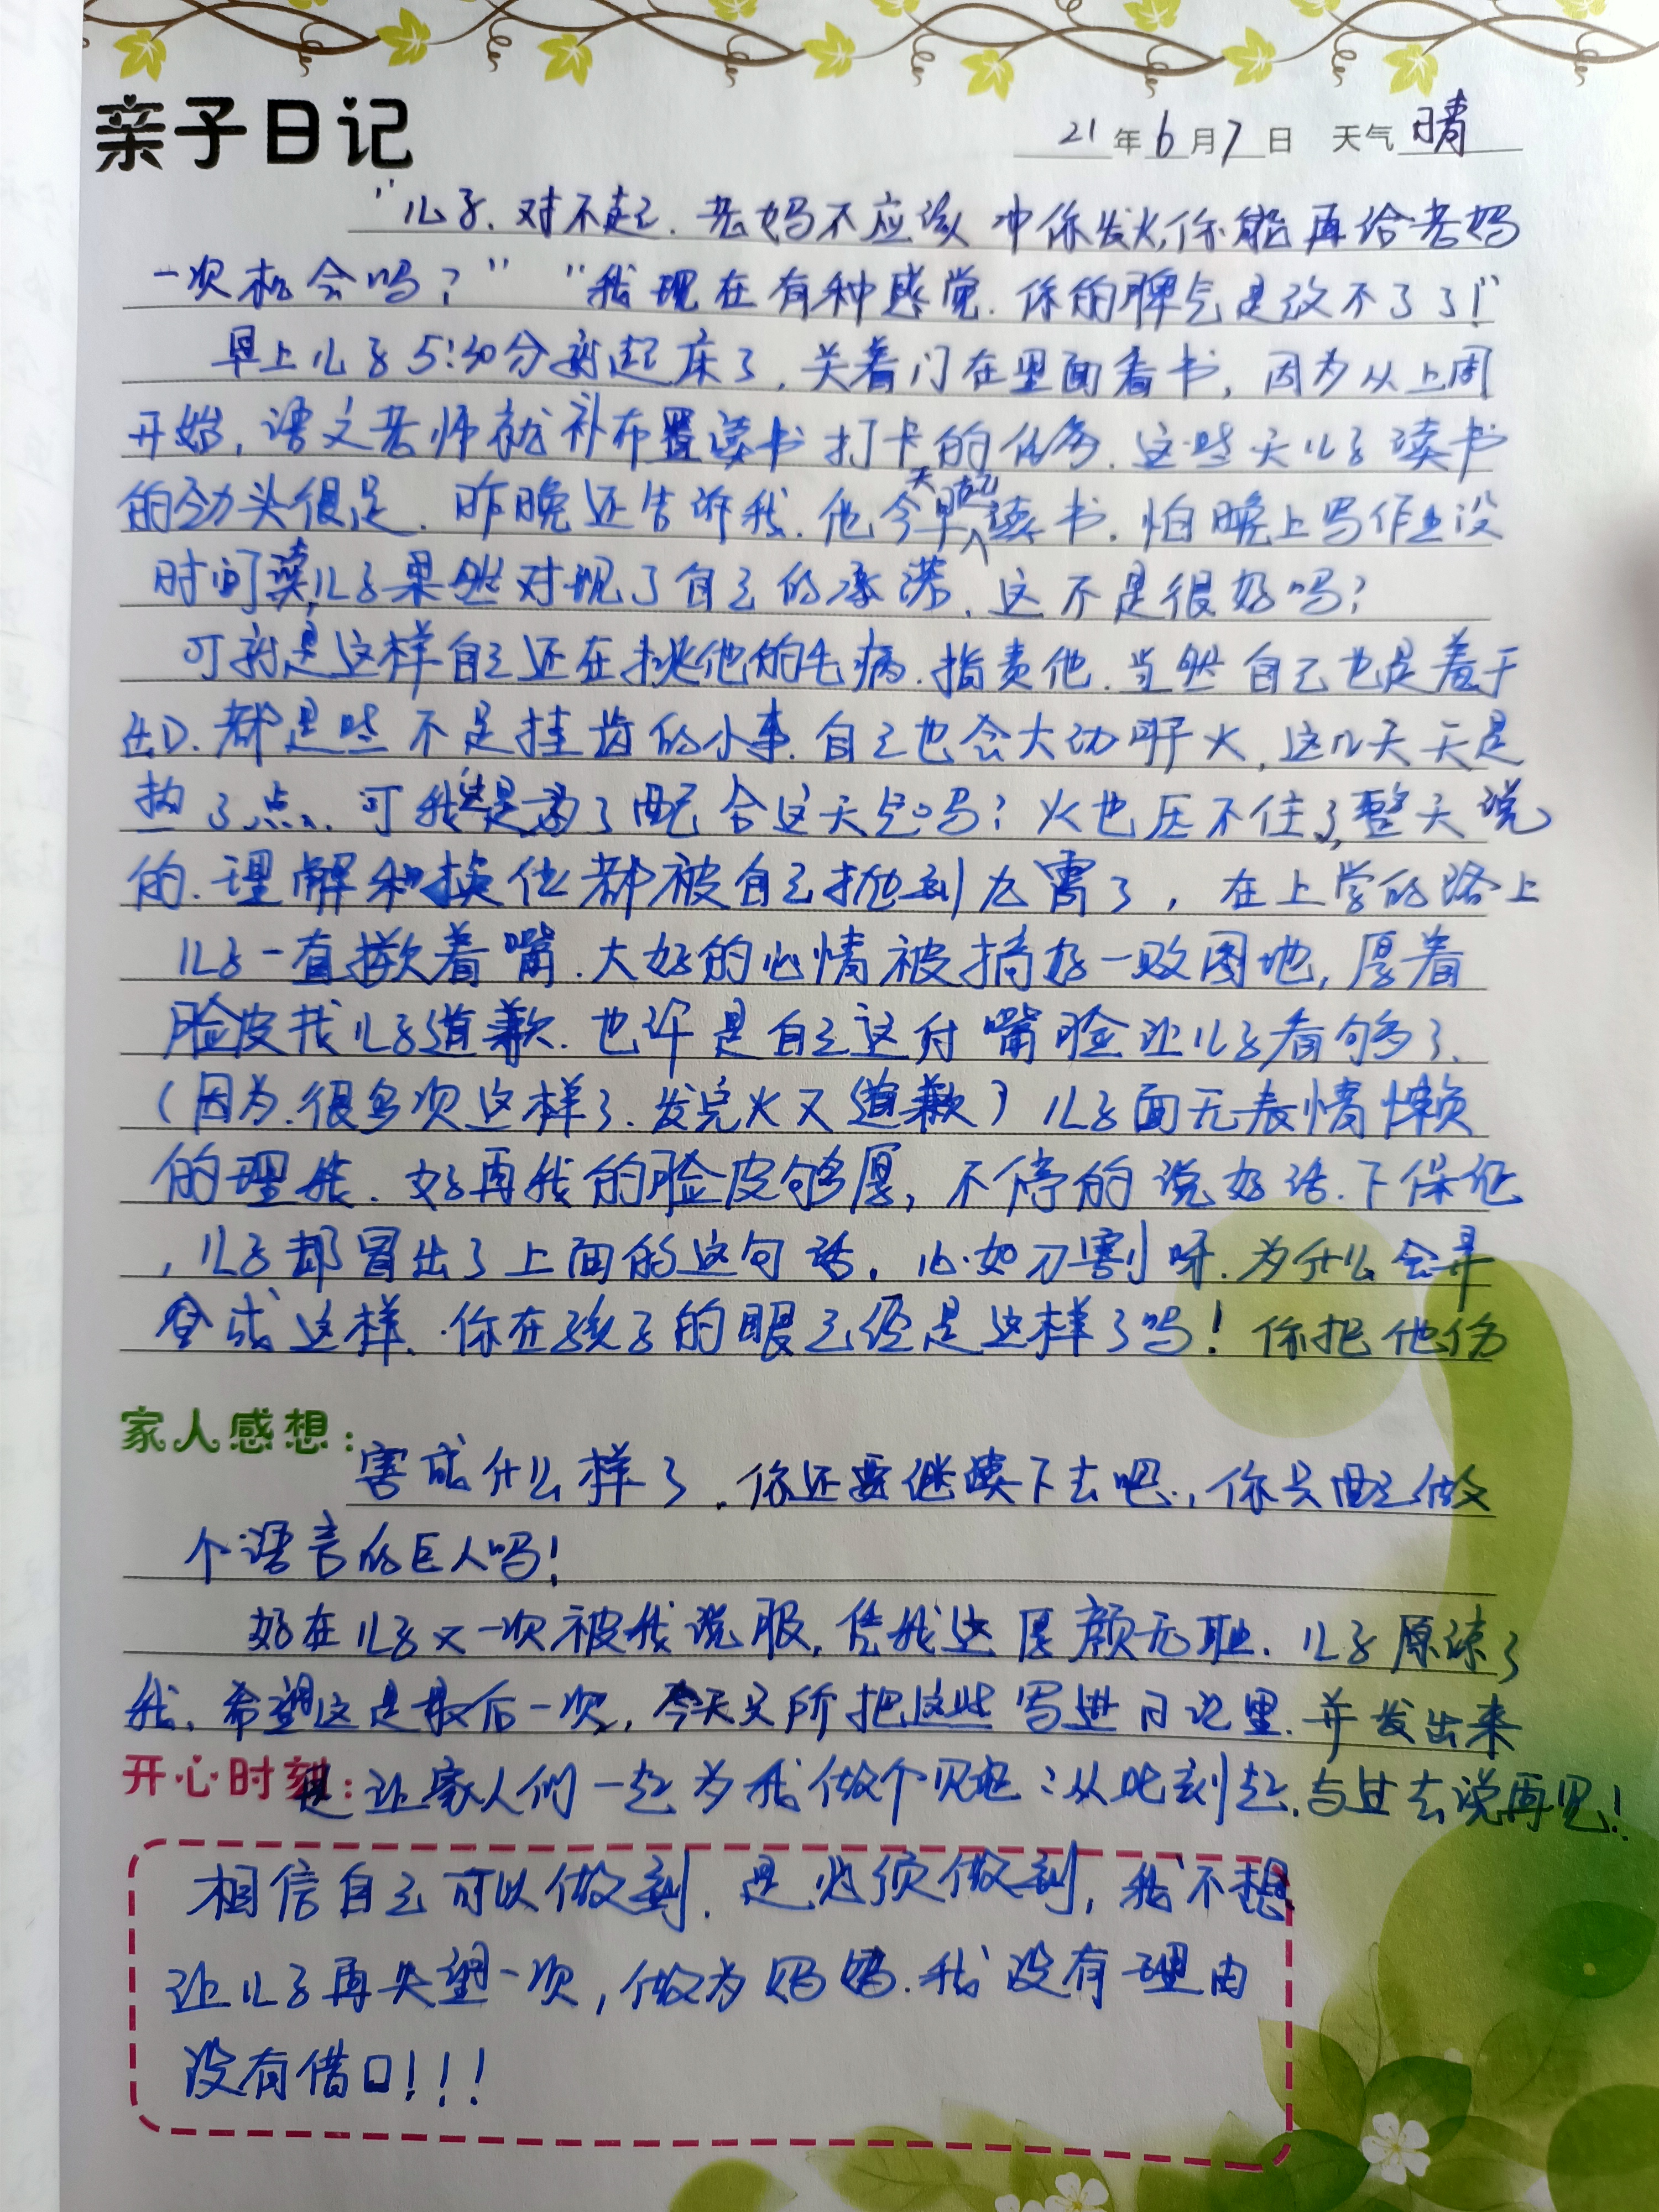 亲子日记
21年6月7日 天气晴
"儿子.对不起.老妈不应该冲你发火,你能再给老妈
一次机会吗?" "我现在有种感觉.你的脾气是改不了了!"
早上儿子5:30分就起床了,关着门在里面看书,因为从上周
开始,语文老师就补布置读书打卡的任务.这些天儿子读书
的劲头很足.昨晚还告诉我.他今天早起读书.怕晚上写作业没
时间读,儿子果然对现了自己的承诺.这不是很好吗?
可就是这样自己还在挑他的毛病.指责他.当然自己也是羞于
出口.都是些不足挂齿的小事.自己也会大动肝火,这几天天是
热了点、可我这是为了配合这天气吗?火也压不住了,整天说
的.理解和换位都被自己抛到九霄了,在上学的路上
儿子一直撅着嘴.大好的心情被搞好一败图地,厚着
脸皮找儿子道歉.也许是自己这付嘴脸让儿子看够了、
(因为.很多次这样了.发完火又道歉)儿子面无表情懒
的理我.好再我的脸皮够厚,不停的说好话.下保证
,儿子却冒出了上面的这句话.心如刀割呀.为什么会弄
成这样.你在孩子的眼已经是这样了吗!你把他伤
家人感想:
害成什么样了.你还要继续下去吧.,你只要做
个语言的巨人吗!
好在儿子又一次被我说服,凭我这厚颜无耻.儿子原谅了
我.希望这是最后一次,今天之所把这些写进日记里.并发出来
开心时刻:
是让家人们一起为我做个见证:从此刻起.与过去说再见!
相信自己可以做到.是必须做到,我不想
让儿子再失望一次,做为妈妈.我没有理由
没有借口!!!